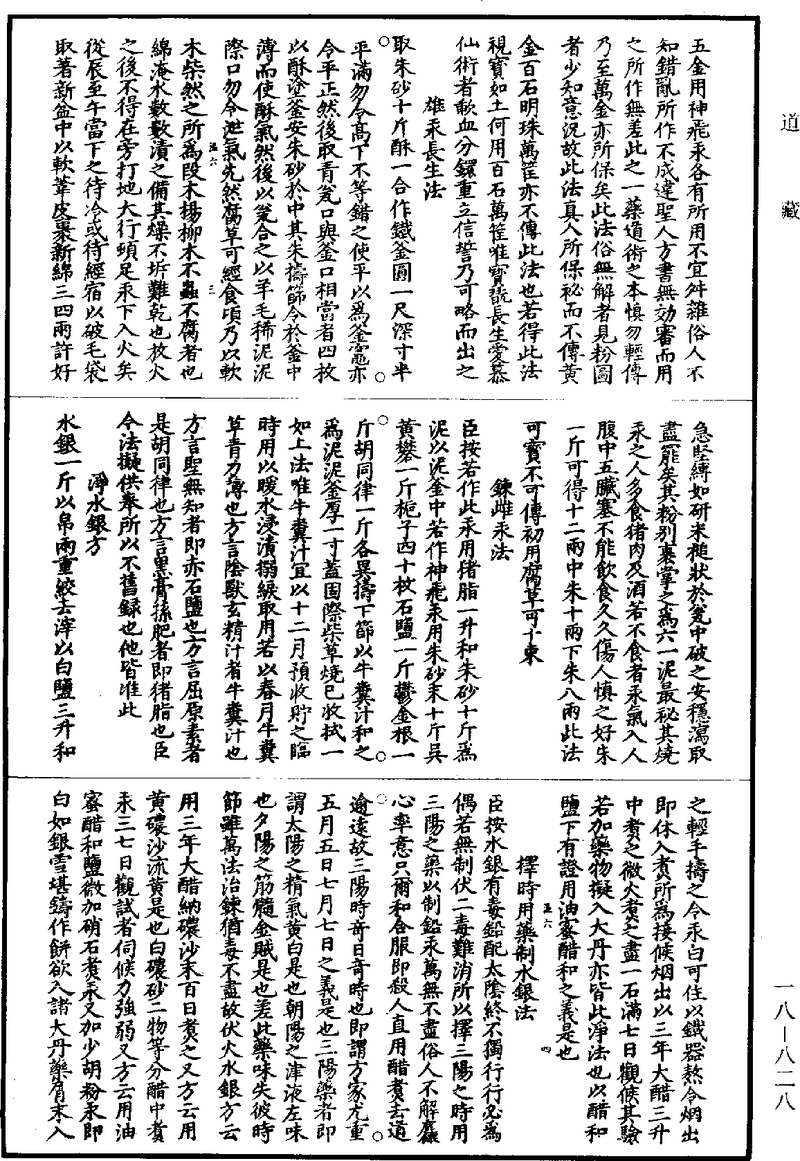 道藏
五金用神飛汞各有所用不宜舛雜俗人不
知錯亂所作不成違聖人方書無効審而用
之所作無差此之一藥道術之本慎勿輕傳
乃至萬金亦所保矣此法俗無解者見粉圖
者少知意況故此法真人所保祕而不傳黃
金百石明珠萬筐亦不傳此法也若得此法
視寶如土何用百石萬筐唯寶翫長生愛慕
仙術者歃血分鐶重立信誓乃可略而出之
雄汞長生法
取朱砂十斤酥一合作鐵釜圓一尺深寸半
平滿勿令高下不等錯之使平以為釜竈亦
令平正然後取青瓮口與釜口相當者四枚
以酥塗釜安朱砂於中其朱擣篩令於釜中
薄而使酥氣然後以瓮合之以羊毛稀泥泥
際口勿令泄氣先然腐草可經食頃乃以軟
木柴然之所為段木楊柳木不蟲不腐者也
綿淹水數數漬之備其燥不坼難乾也放火
之後不得在旁打地大行頓足汞下入火矣
從辰至午當下之待冷或待經宿以破毛袋
取著新盆中以軟葦皮裹新綿三四兩許好
急堅縛如研米槌狀於瓮中破之安穩瀉取
盡罷矣其粉別裹掌之為六一泥最祕其燒
汞之人多食猪肉及酒若不食者汞氣入人
腹中五臟塞不能飲食久久傷人慎之好朱
一斤可得十二兩中朱十兩下朱八兩此法
可寶不可傳初用腐草可十束
鍊雌汞法
臣按若作此汞用猪脂一升和朱砂十斤為
泥以泥釜中若作神飛汞用朱砂末十斤吳
黃礬一斤梔子四十枚石鹽一斤鬱金根一
斤胡同律一斤各異擣下篩以牛糞汁和之
為泥泥釜厚一寸蓋固際柴草燒已收拭一
如上法唯牛糞汁宜以十二月預收貯之臨
時用以暖水浸漬搦緱取用若以春月牛糞
草青力薄也方言陰獸玄精汁者牛糞汁也
方言聖無知者即赤石鹽也方言屈原素者
是胡同律也方言黑膏孫肥者即猪脂也臣
今法擬供奉所以不舊録也他皆准此
淨水銀方
水銀一斤以帛兩重絞去滓以白鹽三升和
之輕手擣之令汞白可住以鐵器熬令烟出
即休入煮所為接候烟出以三年大醋三升
中煮之微火煮之盡一石滿七日觀候其驗
若加藥物擬入大丹亦皆此淨法也以醋和
鹽下有證用油蜜醋和之義是也
擇時用藥制水銀法
臣按水銀有毒鉛配太陰終不獨行行必為
偶若無制伏二毒難消所以擇三陽之時用
三陽之藥以制鉛汞萬無不盡俗人不解麤
心率意只爾和合服即殺人直用醋煮去道
逾遠故三陽時奇日奇時也即謂方家尤重
五月五日七月七日之義是也三陽藥者即
謂太陽之精氣黃白是也朝陽之津液左味
也夕陽之筋髓金賊是也差此藥味失彼時
節雖萬法治鍊猶毒不盡故伏火水銀方云
用三年大醋納硇沙末百日煮之又方云用
黃礬沙流黃是也白礬砂二物等分醋中煮
汞三七日觀試者伺候力強弱又方云用油
蜜醋和鹽微加硝石煮汞又加少胡粉汞即
白如銀雪堪鑄作餅欲入諸大丹藥屑末入
一八—八二八